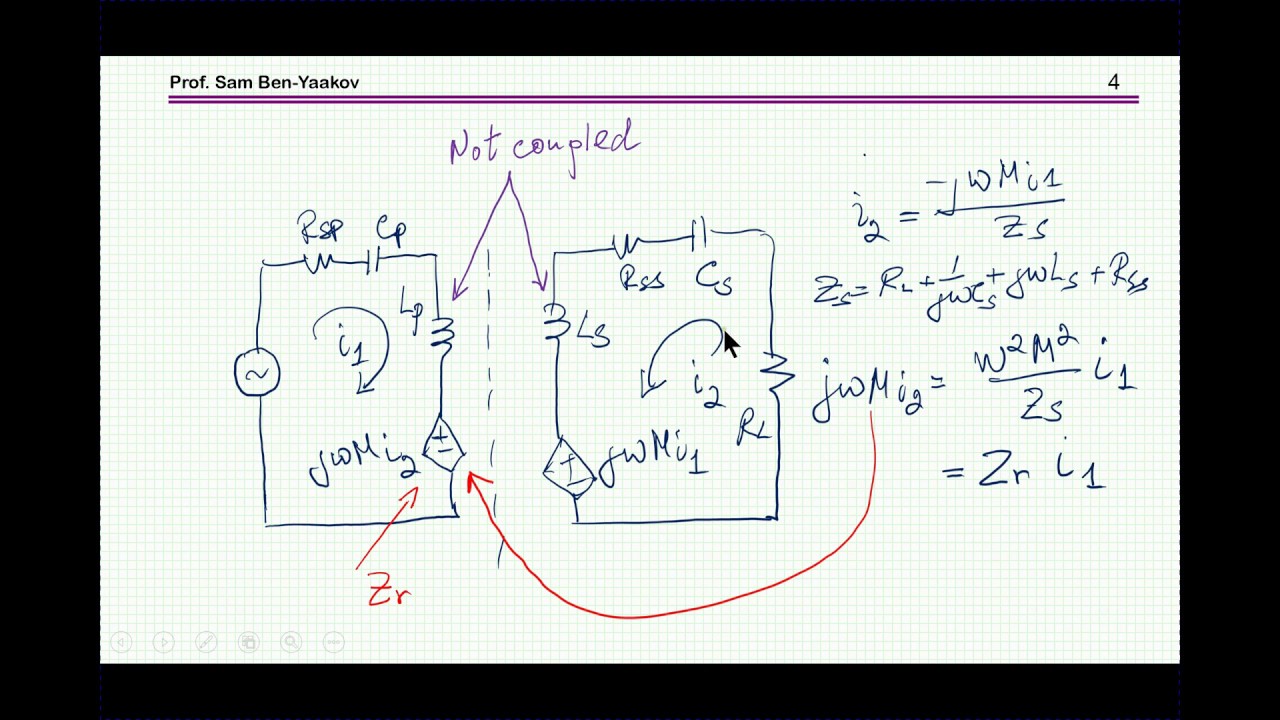 Prof. Sam Ben-Yaakov
4
Not coupled
Rsp Cp
Lp
i1
jωMi2
Zr
Rss Cs
Ls
i2
RL
jωMi1
i2 = -jωMi1 / Zs
Zs = RL + 1/jωCs + jωLs + Rss
jωMi2 = ω²M²/Zs i1
= Zr i1